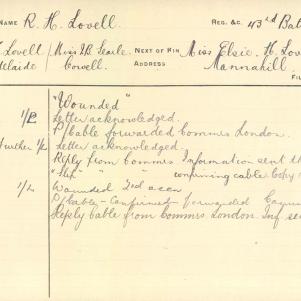 NAME R. H. Lovell REG. &C. 43rd Bat
Lovell Miss I.B. Searle NEXT OF KIN Miss Elsie H. Lov
Adelaide Cowell ADDRESS Mannahill
"Wounded"
Letter acknowledged.
P/Cable forwarded Commrs London.
Further Letter acknowledged.
Reply from Commrs Information sent th
confirming cable Copy
Wounded 2nd occn
P/Cable - Confirmed - forwarded
Reply Cable from Commrs London. Inf se